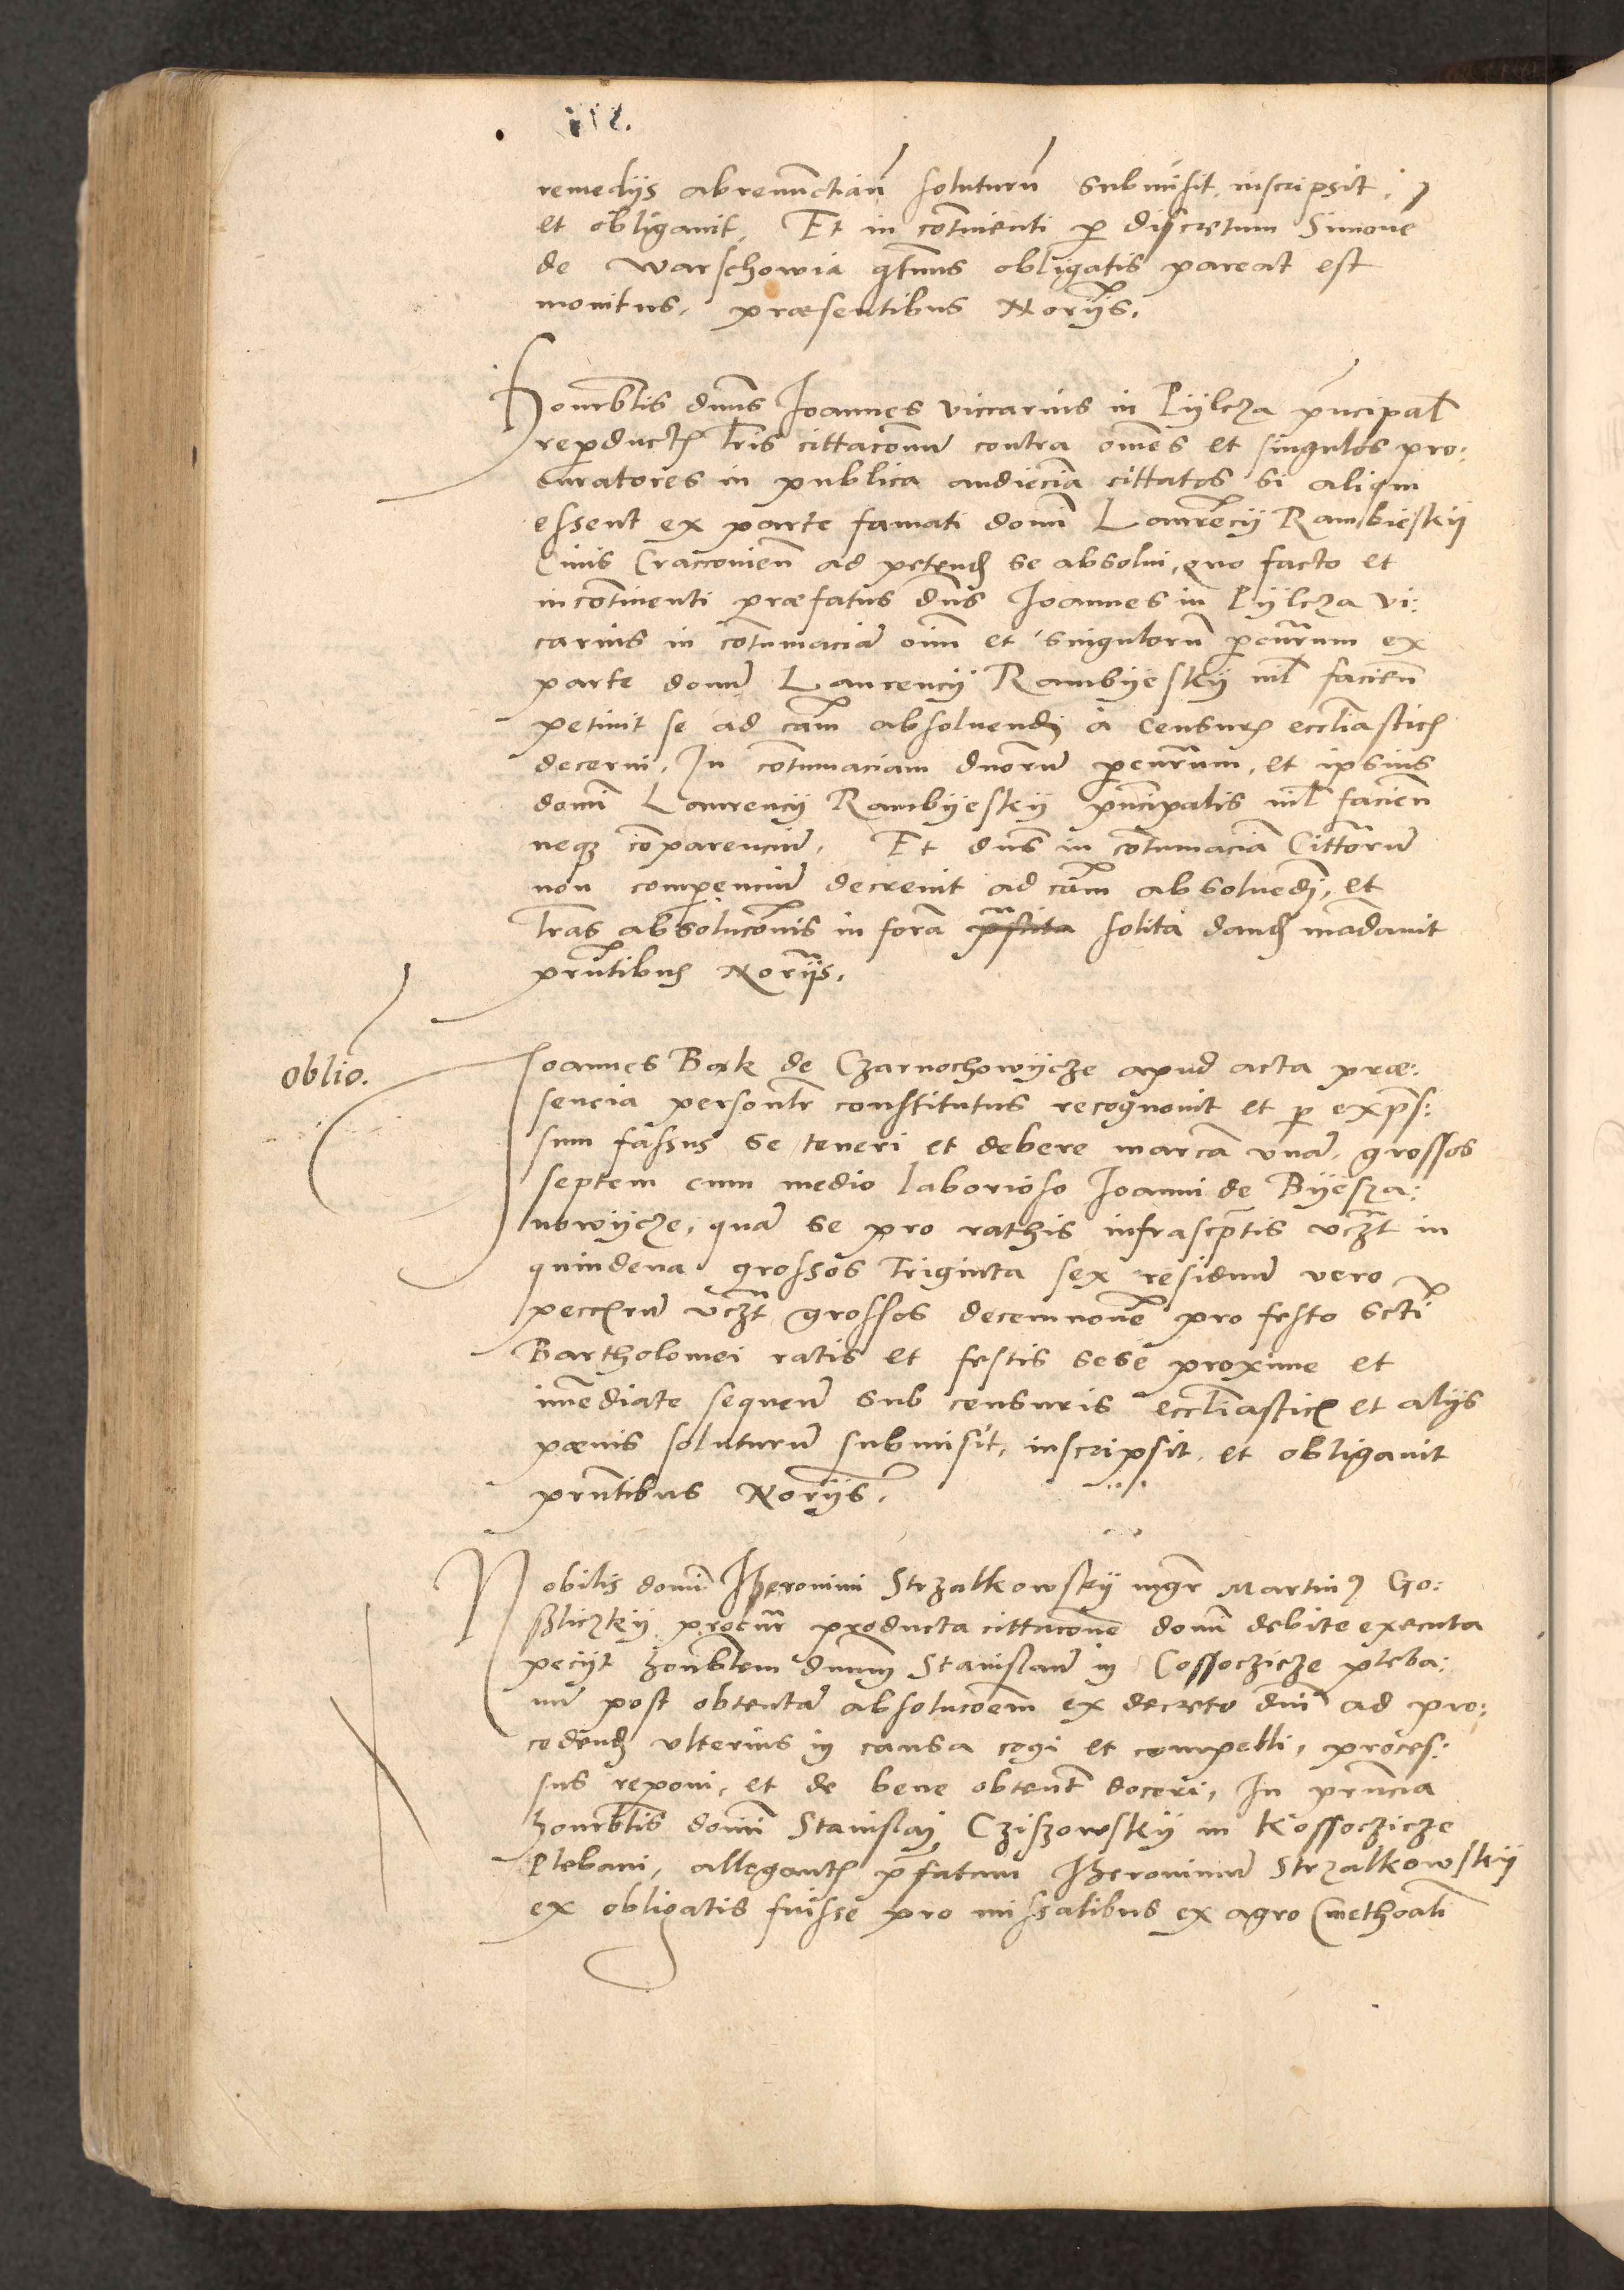 remedijs abrenunctian̄ soluturū submisit, inscripsit,
et obligavit, Et in cōtinenti p discretum Simonē
de Warschowia qtenus obligatis pareat est
monitus, præsentibus Norijs.
Honorblis dnus Joannes viccarius in Pijlcza prncipal
reproductis lris cittacōnum contra omēs et singulos pro:
curatores in publica audiēcia cittatos si aliqui
essent ex parte famati domī Laurēcij Rambieskij
Civis Cracovien̄ ad petend se absolvi, quo facto et
incōtinenti præfatus dns Joannes in Pijlcza vi:
carius in cōtumaciā oim et singulorū procurarum ex
parte domi Laurencij Rambijeskij nil facien̄
petivit se ad cam absoluendi à censuris eccliasticis
decerni, In cōtumaciam duorū procurarum, et ipsius
domī Laurencij Rambijeskij prncipalis nil facien̄
neqz cōparenciū, Et dns in cōtumaciā Cittatorū
non comperenciū decrevit ad cām absoluēdī, et
lras absolucōnis in forā solita dand mādauit
prntibus Norijs.
oblio.
Joannes Bak de Czarnochowijcze apud acta præ:
sencia personlr constitutus recognovit et p expres:
sum fassus se teneri et debere marcā vnā, grossos
septem cum medio laborioso Joanni de Bijesza:
nowijcze, quā se pro rathis infrascptis vczt in
quindena grossos Triginta sex residuū vero
pecciarū vczt grossos decemnovē pro festo scti
Bartholomei ratis et festis sese proxime et
imēdiate sequen̄ sub censuris eccliasticis et alijs
pænis soluturū submisit, inscripsit, et obligavit
prntibus Norijs.
Nobilis domī Hieronimi Strzalkowskij mgr Martinus Go:
szliczkij procur producta cittacōne domi debite executa
pecijt honorblem dnum Stanislaū in Cossoczicze pleba:
nū post obtentā absolucōem ex decreto dni ad pro:
cedend vlterius in causa cogi et compelli, proces:
sus reponi, et de bene obtent doceri, In prncia
honorblis domī Stanislaj Cziszowskij in Kossoczicze
Plebani, allegantis prfatum Hieronimū Strzalkowskij
ex obligatis fuisse pro missalibus ex agro Cmethonali